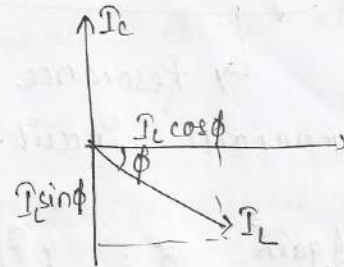 I_C
I_L cosφ
φ
I_L sinφ
I_L